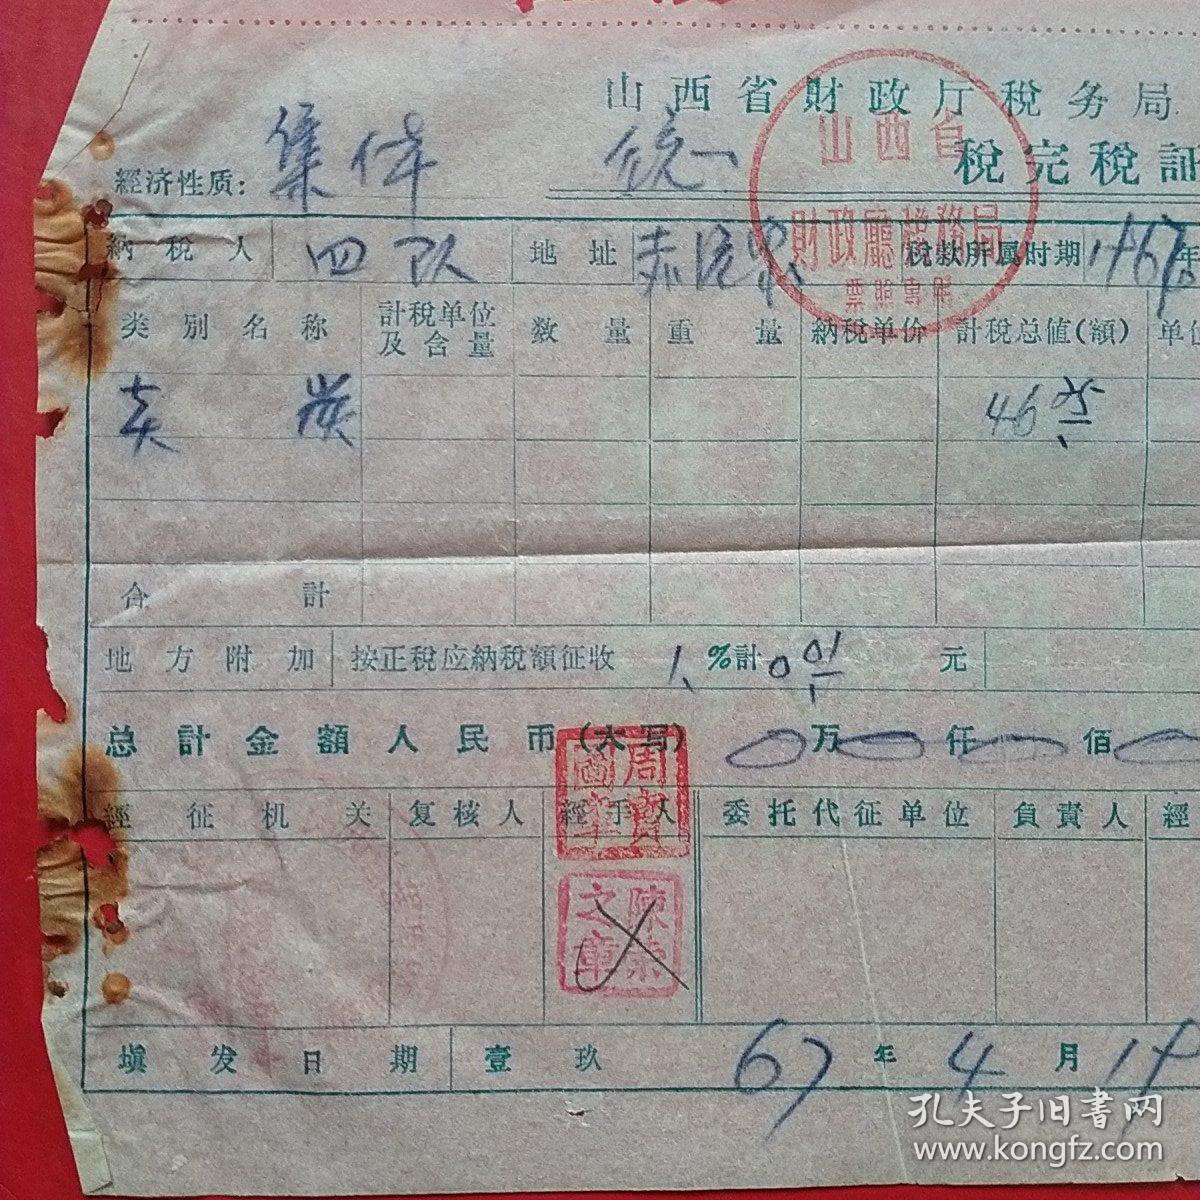 山西省财政厅税务局
山西省
财政廳税務局
票照專用
經济性质: 集体 统一 税完税証
納税人 四队 地址 税款所属时期 1967年
类別名称 計税单位及含量 数量 重量 納税单价 計税总值(額) 单位
炭 46.05
合計
地方附加 按正税应納税額征收 1 %計 0.01 元
总計金額人民币(大写) 0万0仟0佰0
經征机关 复核人 經手人 委托代征单位 負責人 經
周寶國筆
填发日期 壹玖67年4月1
孔夫子旧书网
www.kongfz.com